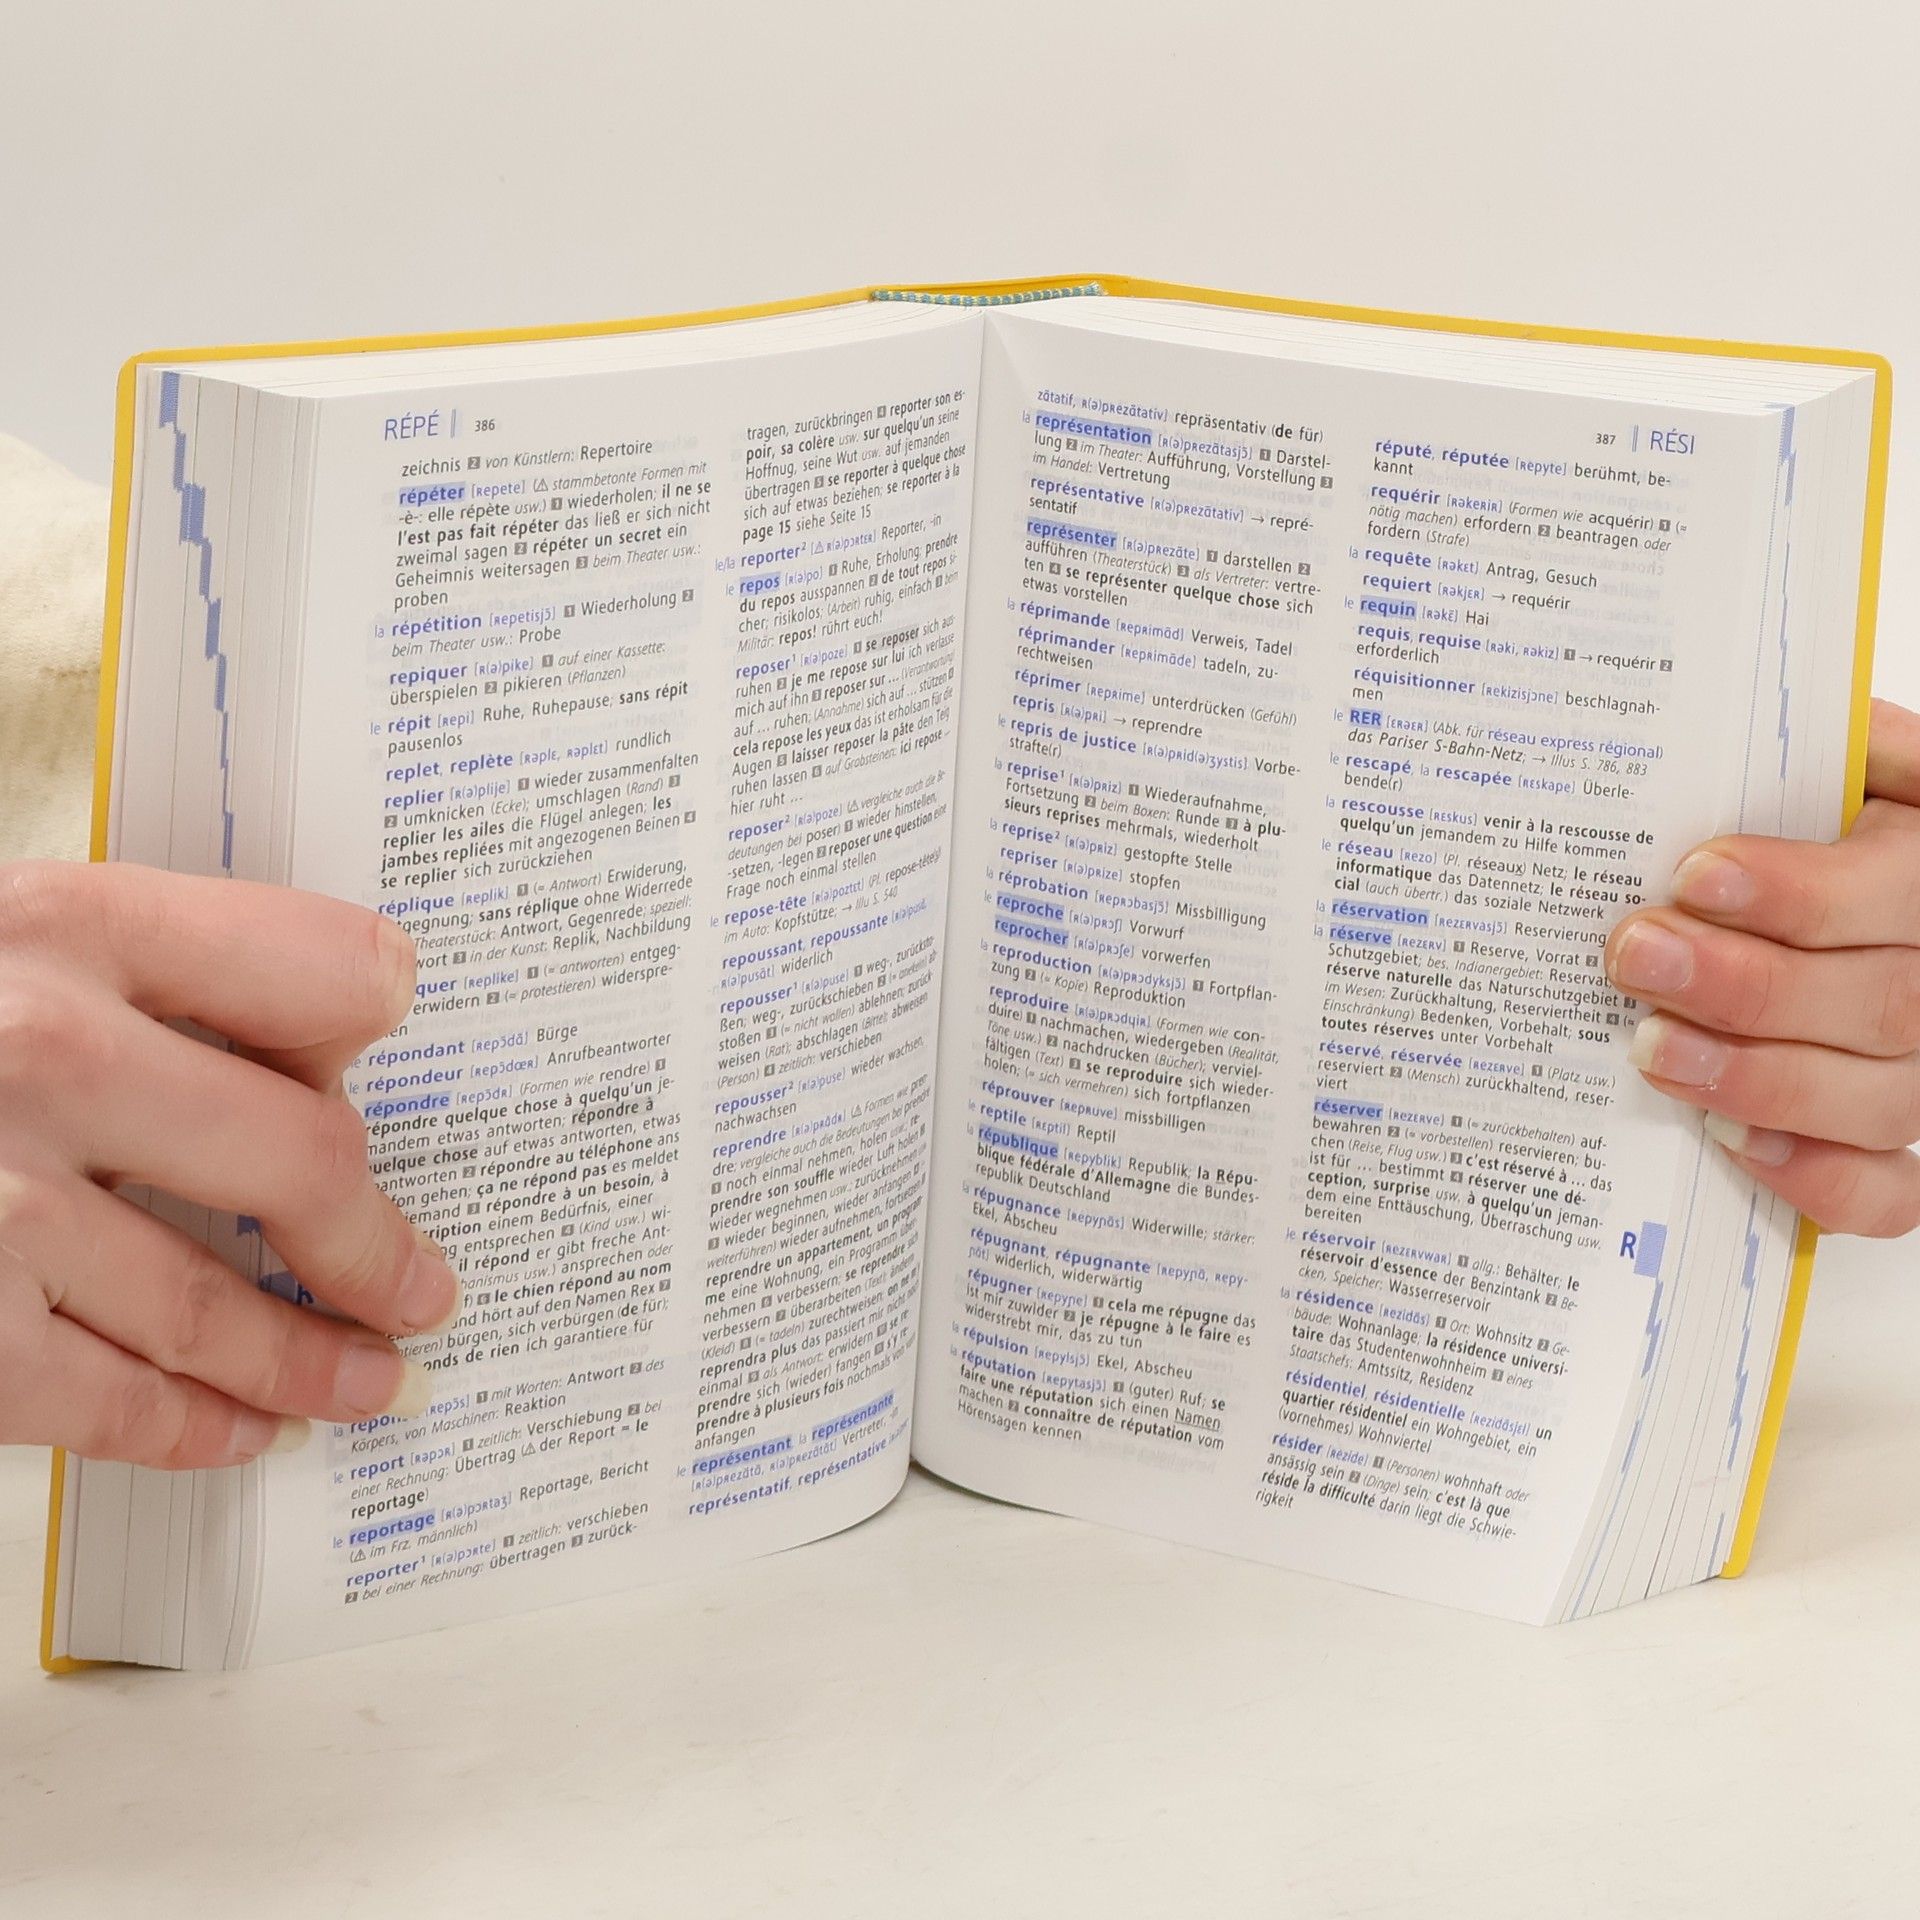 RÉPÉ 386
zeichnis 2 von Künstlern: Repertoire
répéter [ʀepete] (⚠ stammbetonte Formen mit
-è-: elle répète usw.) 1 wiederholen; il ne se
l'est pas fait répéter das ließ er sich nicht
zweimal sagen 2 répéter un secret ein
Geheimnis weitersagen 3 beim Theater usw.:
proben
la répétition [ʀepetisjɔ̃] 1 Wiederholung 2
beim Theater usw.: Probe
repiquer [ʀ(ə)pike] 1 auf einer Kassette:
überspielen 2 pikieren (Pflanzen)
le répit [ʀepi] Ruhe, Ruhepause; sans répit
pausenlos
replet, replète [ʀəplɛ, ʀəplɛt] rundlich
replier [ʀ(ə)plije] 1 wieder zusammenfalten
2 umknicken (Ecke); umschlagen (Rand) 3
replier les ailes die Flügel anlegen; les
jambes repliées mit angezogenen Beinen 4
se replier sich zurückziehen
réplique [ʀeplik] 1 (= Antwort) Erwiderung,
tgegnung; sans réplique ohne Widerrede
Theaterstück: Antwort, Gegenrede; speziell:
wort 3 in der Kunst: Replik, Nachbildung
quer [ʀeplike] 1 (= antworten) entgeg-
erwidern 2 (= protestieren) widerspre-
en
le répondant [ʀepɔ̃dɑ̃] Bürge
le répondeur [ʀepɔ̃dœʀ] Anrufbeantworter
répondre [ʀepɔ̃dʀ] (Formen wie rendre) 1
répondre quelque chose à quelqu'un je-
mandem etwas antworten; répondre à
quelque chose auf etwas antworten, etwas
antworten 2 répondre au téléphone ans
fon gehen; ça ne répond pas es meldet
iemand 3 répondre à un besoin, à
cription einem Bedürfnis, einer
ng entsprechen 4 (Kind usw.) wi-
il répond er gibt freche Ant-
hanismus usw.) ansprechen oder
f) 6 le chien répond au nom
und hört auf den Namen Rex 7
ntieren) bürgen, sich verbürgen (de für);
onds de rien ich garantiere für
la répon [ʀepɔ̃s] 1 mit Worten: Antwort 2 des
Körpers, von Maschinen: Reaktion
le report [ʀəpɔʀ] 1 zeitlich: Verschiebung 2 bei
einer Rechnung: Übertrag (⚠ der Report = le
reportage)
le reportage [ʀ(ə)pɔʀtaʒ] Reportage, Bericht
(⚠ im Frz. männlich)
reporter¹ [ʀ(ə)pɔʀte] 1 zeitlich: verschieben
2 bei einer Rechnung: übertragen 3 zurück-
tragen, zurückbringen 4 reporter son es-
poir, sa colère usw. sur quelqu'un seine
Hoffnug, seine Wut usw. auf jemanden
übertragen 5 se reporter à quelque chose
sich auf etwas beziehen; se reporter à la
page 15 siehe Seite 15
le/la reporter² [⚠ ʀ(ə)pɔʀtɛʀ] Reporter, -in
le repos [ʀ(ə)po] 1 Ruhe, Erholung; prendre
du repos ausspannen 2 de tout repos si-
cher; risikolos; (Arbeit) ruhig, einfach 3 beim
Militär: repos! rührt euch!
reposer¹ [ʀ(ə)poze] 1 se reposer sich aus-
ruhen 2 je me repose sur lui ich verlasse
mich auf ihn 3 reposer sur … (Verantwortung)
auf … ruhen; (Annahme) sich auf … stützen 4
cela repose les yeux das ist erholsam für die
Augen 5 laisser reposer la pâte den Teig
ruhen lassen 6 auf Grabsteinen: ici repose …
hier ruht …
reposer² [ʀ(ə)poze] (⚠ vergleiche auch die Be-
deutungen bei poser) 1 wieder hinstellen,
-setzen, -legen 2 reposer une question eine
Frage noch einmal stellen
le repose-tête [ʀ(ə)poztɛt] (Pl. repose-tête(s))
im Auto: Kopfstütze; → Illu S. 540
repoussant, repoussante [ʀ(ə)pusɑ̃,
ʀ(ə)pusɑ̃t] widerlich
repousser¹ [ʀ(ə)puse] 1 weg-, zurücksto-
ßen; weg-, zurückschieben 2 (= ankeln) ab-
stoßen 3 (= nicht wollen) ablehnen; zurück-
weisen (Rat); abschlagen (Bitte); abweisen
(Person) 4 zeitlich: verschieben
repousser² [ʀ(ə)puse] wieder wachsen,
nachwachsen
reprendre [ʀ(ə)pʀɑ̃dʀ] (⚠ Formen wie pren-
dre; vergleiche auch die Bedeutungen bei prendre)
1 noch einmal nehmen, holen usw.; re-
prendre son souffle wieder Luft holen 2
wieder wegnehmen usw.; zurücknehmen usw.
3 wieder beginnen, wieder anfangen 4 (=
weiterführen) wieder aufnehmen, fortsetzen 5
reprendre un appartement, un program-
me eine Wohnung, ein Programm über-
nehmen 6 verbessern; se reprendre sich
verbessern 7 überarbeiten (Text); ändern
(Kleid) 8 (= tadeln) zurechtweisen; on ne m'y
reprendra plus das passiert mir nicht noch
einmal 9 als Antwort: erwidern 10 se re-
prendre sich (wieder) fangen 11 s'y re-
prendre à plusieurs fois nochmals von vorn
anfangen
le représentant, la représentante
[ʀ(ə)pʀezɑ̃tɑ̃, ʀ(ə)pʀezɑ̃tɑ̃t] Vertreter, -in
représentatif, représentative
387 RÉSI
zɑ̃tatif, ʀ(ə)pʀezɑ̃tativ] repräsentativ (de für)
la représentation [ʀ(ə)pʀezɑ̃tasjɔ̃] 1 Darstel-
lung 2 im Theater: Aufführung, Vorstellung 3
im Handel: Vertretung
représentative [ʀ(ə)pʀezɑ̃tativ] → repré-
sentatif
représenter [ʀ(ə)pʀezɑ̃te] 1 darstellen 2
aufführen (Theaterstück) 3 als Vertreter: vertre-
ten 4 se représenter quelque chose sich
etwas vorstellen
la réprimande [ʀepʀimɑ̃d] Verweis, Tadel
réprimander [ʀepʀimɑ̃de] tadeln, zu-
rechtweisen
réprimer [ʀepʀime] unterdrücken (Gefühl)
repris [ʀ(ə)pʀi] → reprendre
le repris de justice [ʀ(ə)pʀid(ə)ʒystis] Vorbe-
strafte(r)
la reprise¹ [ʀ(ə)pʀiz] 1 Wiederaufnahme,
Fortsetzung 2 beim Boxen: Runde 3 à plu-
sieurs reprises mehrmals, wiederholt
la reprise² [ʀ(ə)pʀiz] gestopfte Stelle
repriser [ʀ(ə)pʀize] stopfen
la réprobation [ʀepʀɔbasjɔ̃] Missbilligung
le reproche [ʀ(ə)pʀɔʃ] Vorwurf
reprocher [ʀ(ə)pʀɔʃe] vorwerfen
la reproduction [ʀ(ə)pʀɔdyksjɔ̃] 1 Fortpflan-
zung 2 (= Kopie) Reproduktion
reproduire [ʀ(ə)pʀɔdɥiʀ] (Formen wie con-
duire) 1 nachmachen, wiedergeben (Realität,
Töne usw.) 2 nachdrucken (Bücher); verviel-
fältigen (Text) 3 se reproduire sich wieder-
holen; (= sich vermehren) sich fortpflanzen
réprouver [ʀepʀuve] missbilligen
le reptile [ʀɛptil] Reptil
la république [ʀepyblik] Republik; la Répu-
blique fédérale d'Allemagne die Bundes-
republik Deutschland
la répugnance [ʀepyɲɑ̃s] Widerwille; stärker:
Ekel, Abscheu
répugnant, répugnante [ʀepyɲɑ̃, ʀepy-
ɲɑ̃t] widerlich, widerwärtig
répugner [ʀepyɲe] 1 cela me répugne das
ist mir zuwider 2 je répugne à le faire es
widerstrebt mir, das zu tun
la répulsion [ʀepylsjɔ̃] Ekel, Abscheu
la réputation [ʀepytasjɔ̃] 1 (guter) Ruf; se
faire une réputation sich einen Namen
machen 2 connaître de réputation vom
Hörensagen kennen
réputé, réputée [ʀepyte] berühmt, be-
kannt
requérir [ʀəkeʀiʀ] (Formen wie acquérir) 1 (=
nötig machen) erfordern 2 beantragen oder
fordern (Strafe)
la requête [ʀəkɛt] Antrag, Gesuch
requiert [ʀəkjɛʀ] → requérir
le requin [ʀəkɛ̃] Hai
requis, requise [ʀəki, ʀəkiz] 1 → requérir 2
erforderlich
réquisitionner [ʀekizisjɔne] beschlagnah-
men
le RER [ɛʀəɛʀ] (Abk. für réseau express régional)
das Pariser S-Bahn-Netz; → Illus S. 786, 883
le rescapé, la rescapée [ʀɛskape] Überle-
bende(r)
la rescousse [ʀɛskus] venir à la rescousse de
quelqu'un jemandem zu Hilfe kommen
le réseau [ʀezo] (Pl. réseaux) Netz; le réseau
informatique das Datennetz; le réseau so-
cial (auch übertr.) das soziale Netzwerk
la réservation [ʀezɛʀvasjɔ̃] Reservierung
la réserve [ʀezɛʀv] 1 Reserve, Vorrat 2
Schutzgebiet; bes. Indianergebiet: Reservat;
réserve naturelle das Naturschutzgebiet 3
im Wesen: Zurückhaltung, Reserviertheit 4 (=
Einschränkung) Bedenken, Vorbehalt; sous
toutes réserves unter Vorbehalt
réservé, réservée [ʀezɛʀve] 1 (Platz usw.)
reserviert 2 (Mensch) zurückhaltend, reser-
viert
réserver [ʀezɛʀve] 1 (= zurückbehalten) auf-
bewahren 2 (= vorbestellen) reservieren; bu-
chen (Reise, Flug usw.) 3 c'est réservé à … das
ist für … bestimmt 4 réserver une dé-
ception, surprise usw. à quelqu'un jeman-
dem eine Enttäuschung, Überraschung usw.
bereiten
le réservoir [ʀezɛʀvwaʀ] 1 allg.: Behälter; le
réservoir d'essence der Benzintank 2 Be-
cken, Speicher: Wasserreservoir
la résidence [ʀezidɑ̃s] 1 Ort: Wohnsitz 2 Ge-
bäude: Wohnanlage; la résidence universi-
taire das Studentenwohnheim 3 eines
Staatschefs: Amtssitz, Residenz
résidentiel, résidentielle [ʀezidɑ̃sjɛl] un
quartier résidentiel ein Wohngebiet, ein
(vornehmes) Wohnviertel
résider [ʀezide] 1 (Personen) wohnhaft oder
ansässig sein 2 (Dinge) sein; c'est là que
réside la difficulté darin liegt die Schwie-
rigkeit
R